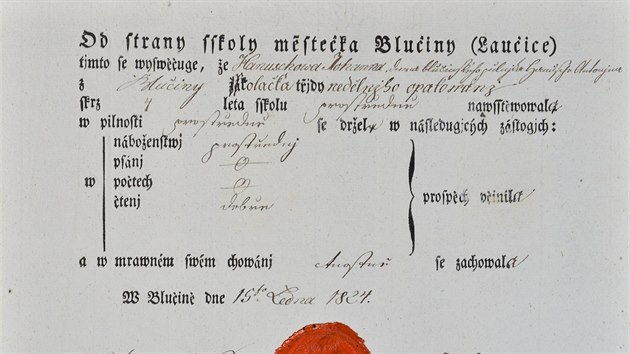 Od strany sskoly městečka Blučiny (Laučice)
timto se wyswěčuge, že Hanuschkowa Johanna, dcera
z Blučiny Školačka třjdy nedělnjho opakowánj
skrz 4 leta sskolu prostředně nawsstěwowala
w pilnosti prostředně se držela w následugjcých zástogjch:
náboženstwj prostředněj
psánj O
w počtech O
čtenj dobře
prospěch učinila
a w mrawném swém chowánj ctnostně se zachowala
W Blučině dne 15ho Ledna 1824.